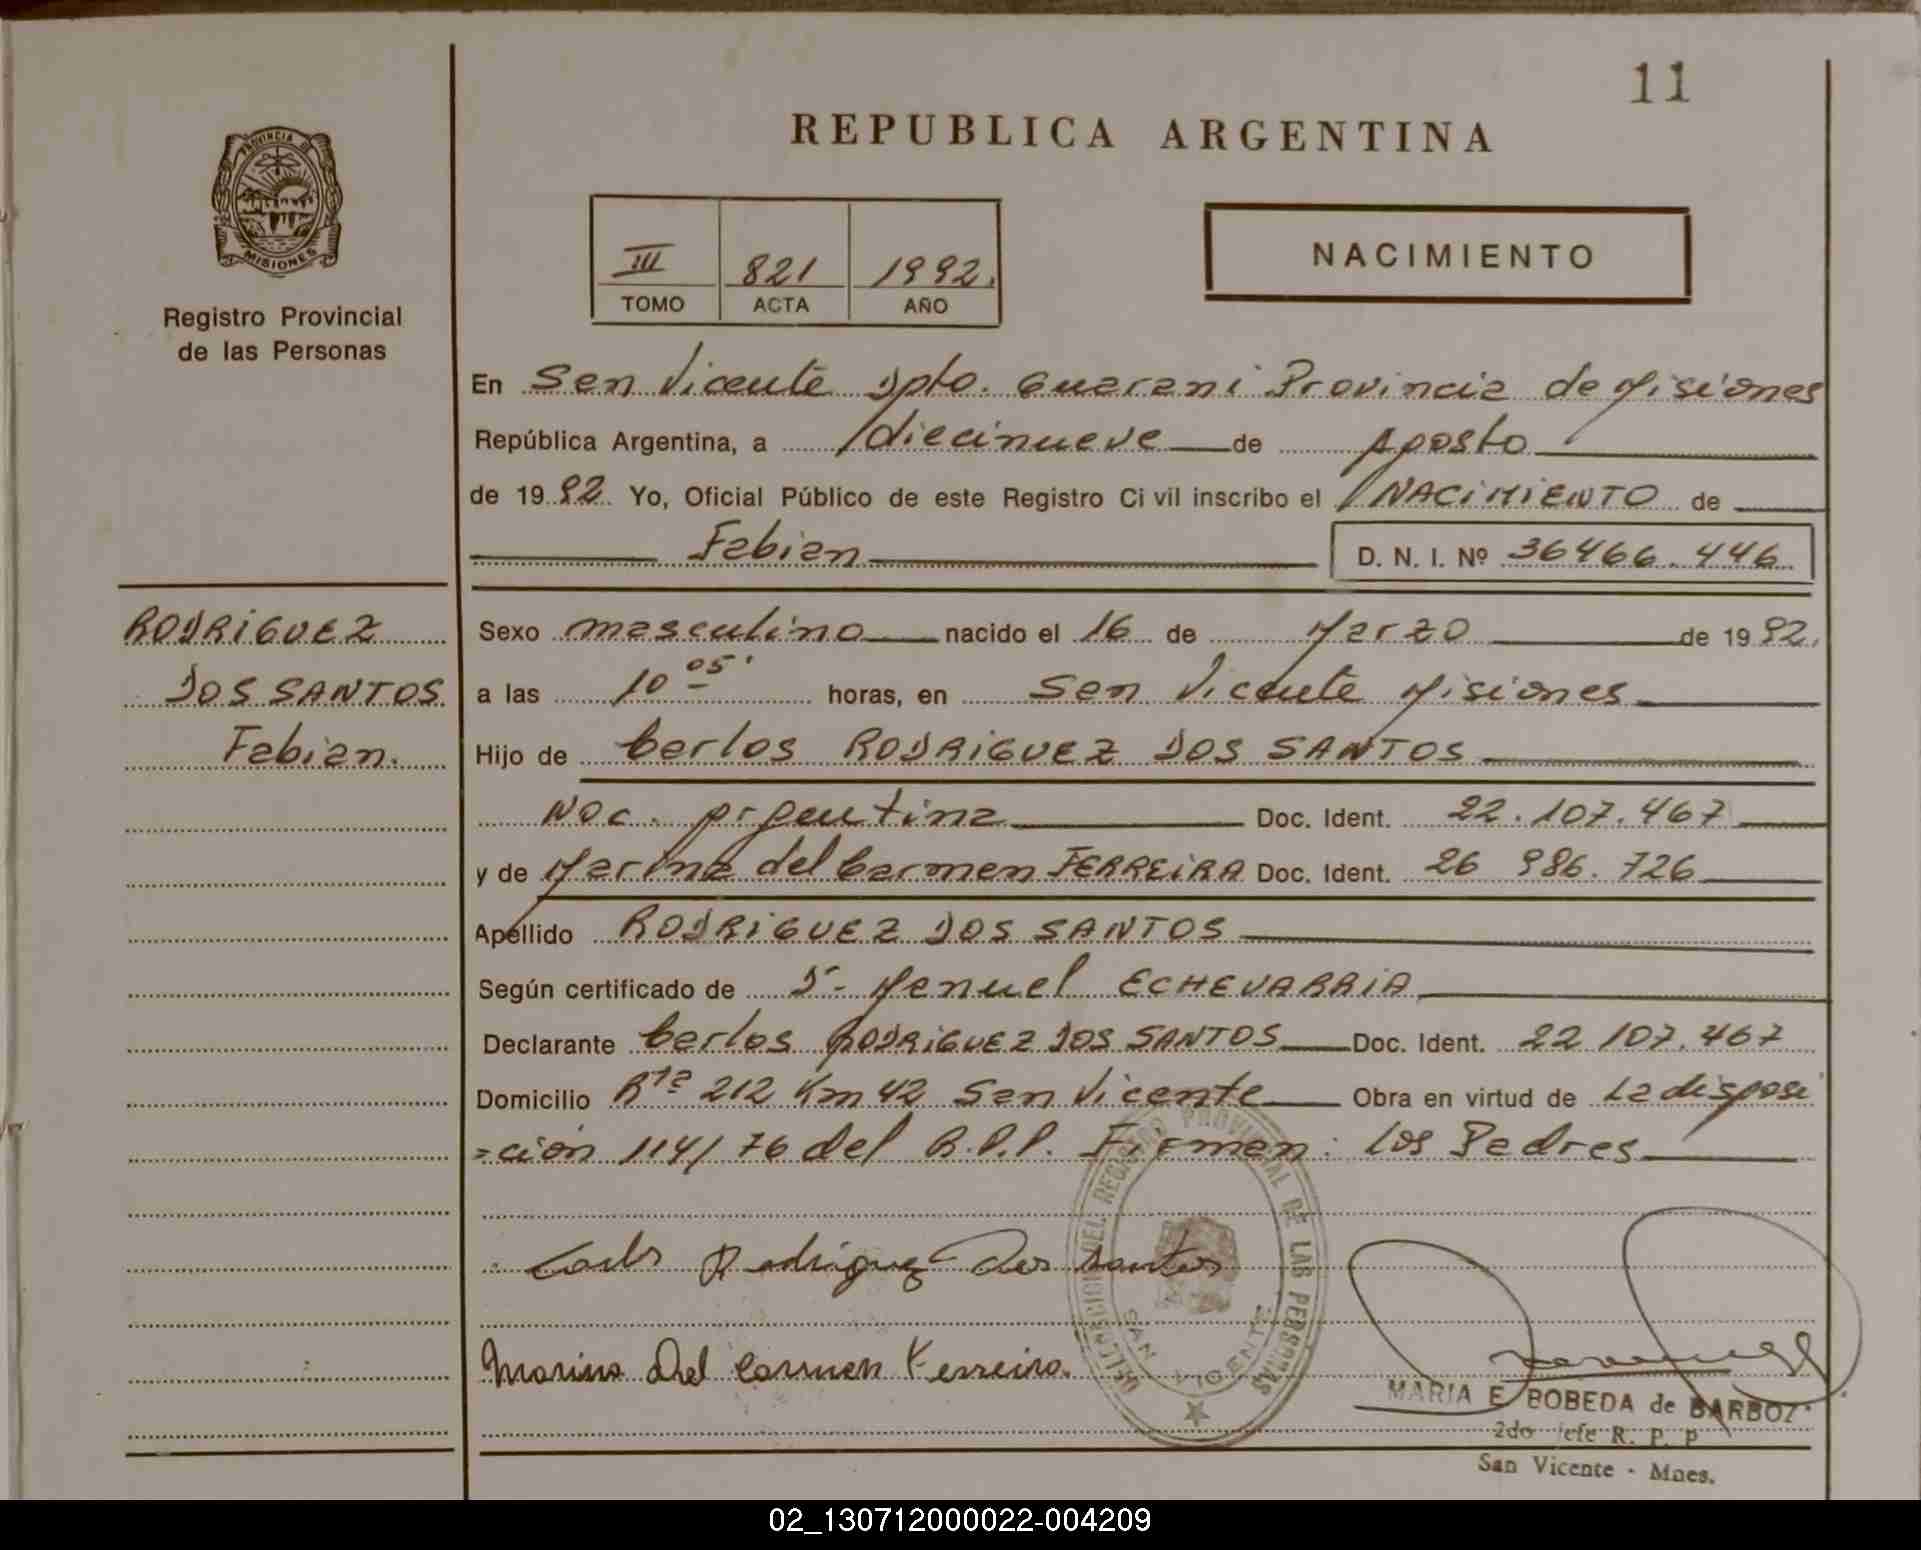 11
REPUBLICA ARGENTINA
PROVINCIA DE
MISIONES
Registro Provincial
de las Personas
III 821 1992.
TOMO ACTA AÑO
NACIMIENTO
En San Vicente Dpto. Guarani Provincia de Misiones
República Argentina, a diecinueve de Agosto
de 1992 Yo, Oficial Público de este Registro Ci vil inscribo el NACIMIENTO de
Fabian D. N. I. Nº 36466.446
RODRIGUEZ
DOS SANTOS
Fabian.
Sexo masculino nacido el 16 de Marzo de 1992.
a las 10 05' horas, en San Vicente Misiones
Hijo de Carlos RODRIGUEZ DOS SANTOS
Nac. Argentina Doc. Ident. 22.107.467
y de Marina del Carmen FERREIRA Doc. Ident. 26 986.726
Apellido RODRIGUEZ DOS SANTOS
Según certificado de D- Manuel ECHEVARRIA
Declarante Carlos RODRIGUEZ DOS SANTOS Doc. Ident. 22 107.467
Domicilio Rta 212 Km 42 San Vicente Obra en virtud de La disposi
=ción 114/76 del R.P.P. Firman: Los Padres
Carlos Rodriguez Dos santos
Marina Del Carmen Ferreira.
DELEGACION DEL REGISTRO PROVINCIAL DE LAS PERSONAS
SAN VICENTE
MARIA E BOBEDA de BARBOZ
2do Jefe R. P. P
San Vicente - Mnes.
02_130712000022-004209